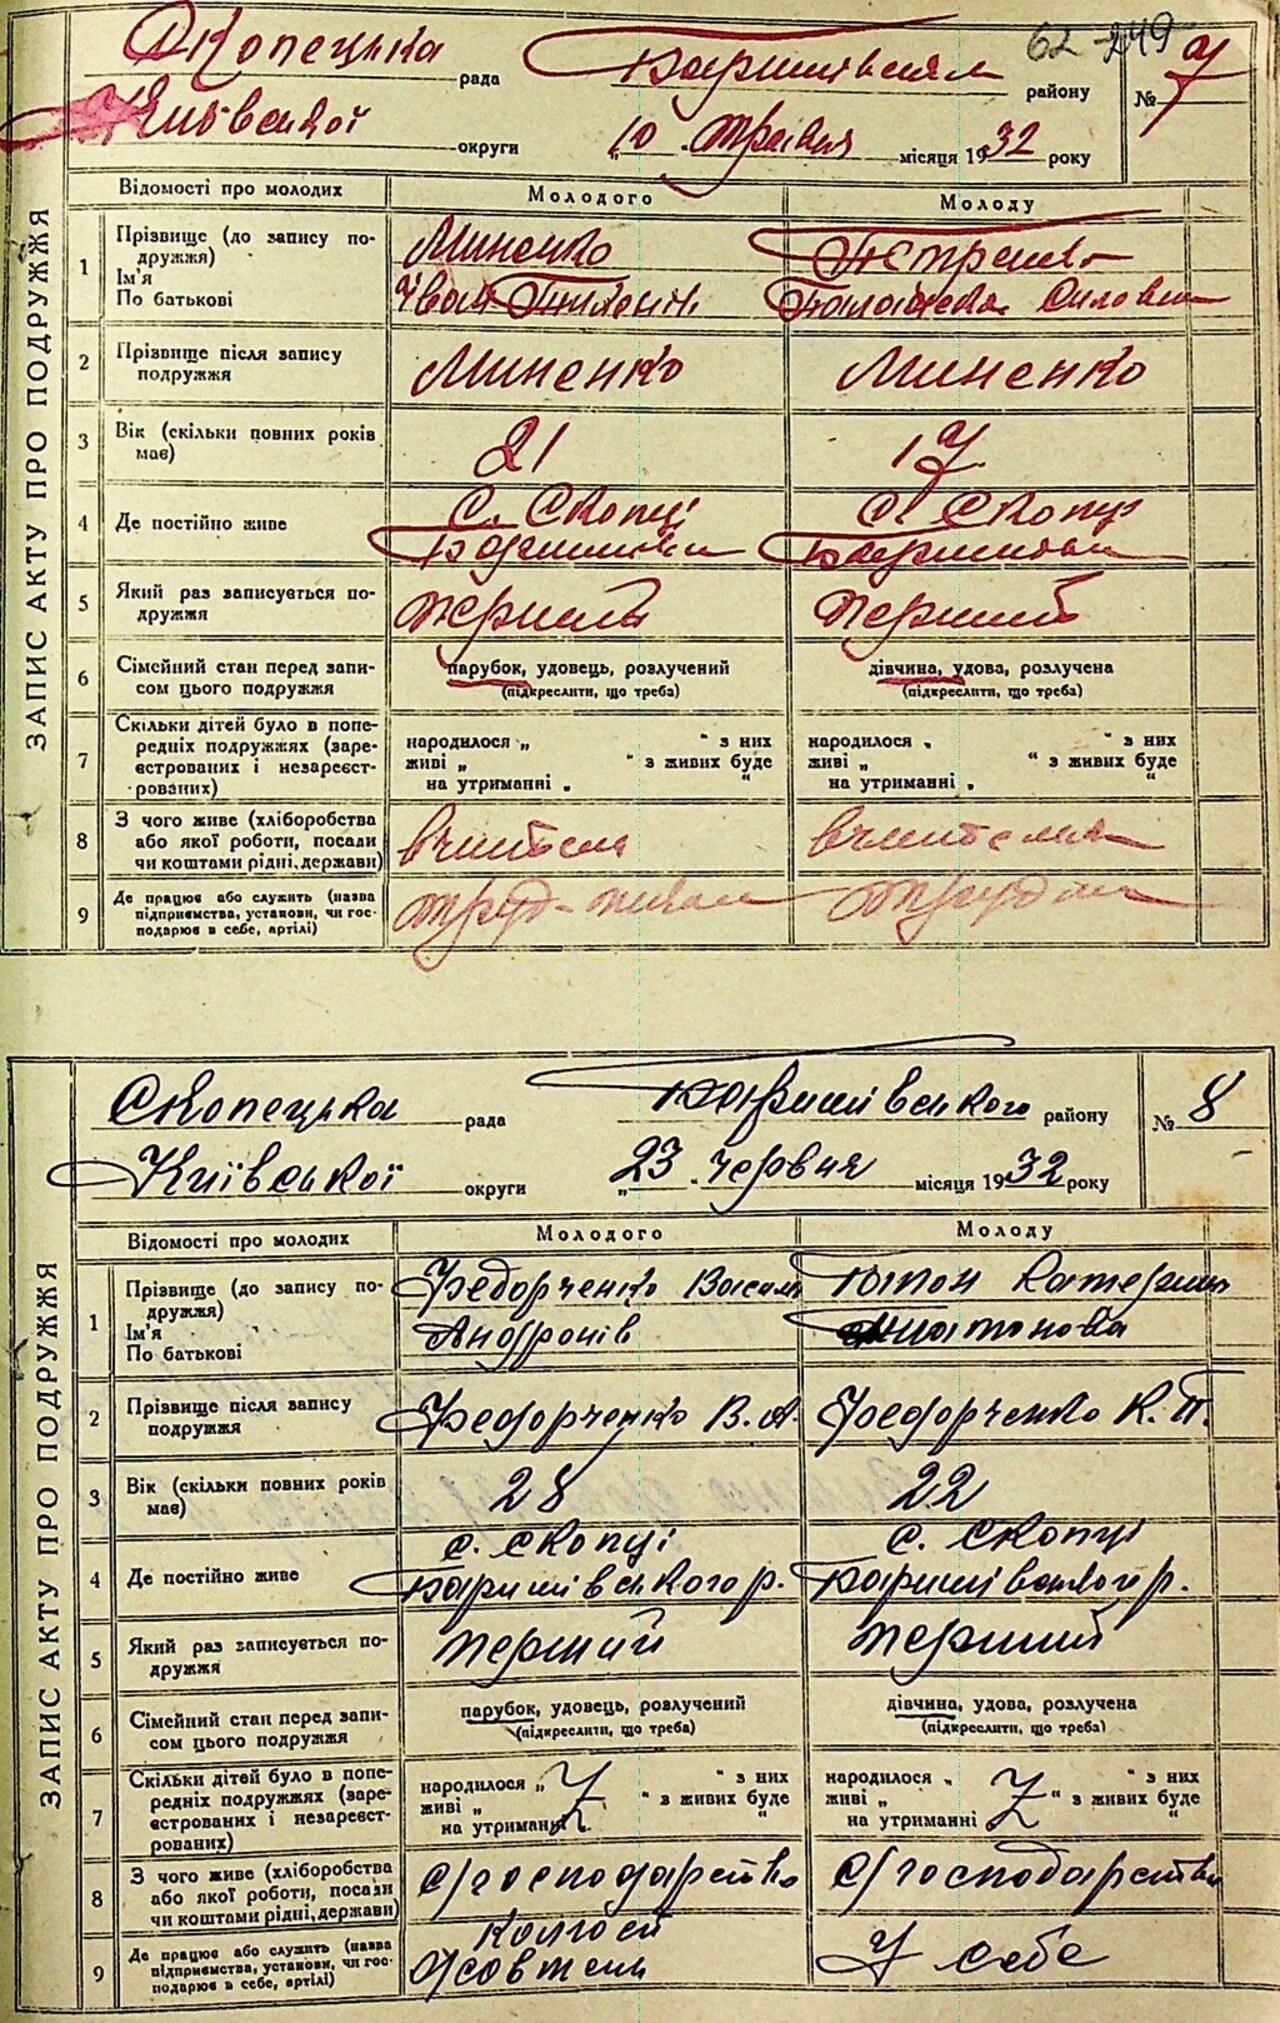 62-249
Скопецька рада Баришівськ району
Київської округи „10 . травня місяця 1932 року № 7
ЗАПИС АКТУ ПРО ПОДРУЖЖЯ
Відомості про молодих Молодого Молоду
1 Прізвище (до запису по-
дружжя)
Ім'я
По батькові
Миненко
Іван
Петренко
2 Прізвище після запису
подружжя
Миненко Миненко
3 Вік (скільки повних років
має)
21 17
4 Де постійно живе
с. Скопці с. Скопці
5 Який раз записується по-
дружжя
перший перший
6 Сімейний стан перед запи-
сом цього подружжя
парубок, удовець, розлучений дівчина, удова, розлучена
(підкреслити, що треба) (підкреслити, що треба)
7 Скільки дітей було в попе-
редніх подружжях (заре-
єстрованих і незареєст-
рованих)
народилося „ “ з них народилося „ “ з них
живі „ “ з живих буде живі „ “ з живих буде
на утриманні „ “ на утриманні „ “
8 З чого живе (хліборобства
або якої роботи, посади
чи коштами рідні, держави)
вчитель вчителька
9 Де працює або служить (назва
підприємства, установи, чи гос-
подарює в себе, артілі)
Скопецька рада Баришівського району № 8
Київської округи „23 . червня місяця 1932 року
ЗАПИС АКТУ ПРО ПОДРУЖЖЯ
Відомості про молодих Молодого Молоду
1 Прізвище (до запису по-
дружжя)
Ім'я
По батькові
Федорченко Василь
Андронів
Катерина
2 Прізвище після запису
подружжя
Федорченко В. А. Федорченко К. П.
3 Вік (скільки повних років
має)
28 22
4 Де постійно живе
с. Скопці с. Скопці
Баришівського р. Баришівського р.
5 Який раз записується по-
дружжя
перший перший
6 Сімейний стан перед запи-
сом цього подружжя
парубок, удовець, розлучений дівчина, удова, розлучена
(підкреслити, що треба) (підкреслити, що треба)
7 Скільки дітей було в попе-
редніх подружжях (заре-
єстрованих і незареєст-
рованих)
народилося „ “ з них народилося „ “ з них
живі „ “ з живих буде живі „ “ з живих буде
на утриманні „ “ на утриманні “
8 З чого живе (хліборобства
або якої роботи, посади
чи коштами рідні, держави)
с/господарство с/господарство
9 Де працює або служить (назва
підприємства, установи, чи гос-
подарює в себе, артілі)
колгосп
Жовтень
У себе